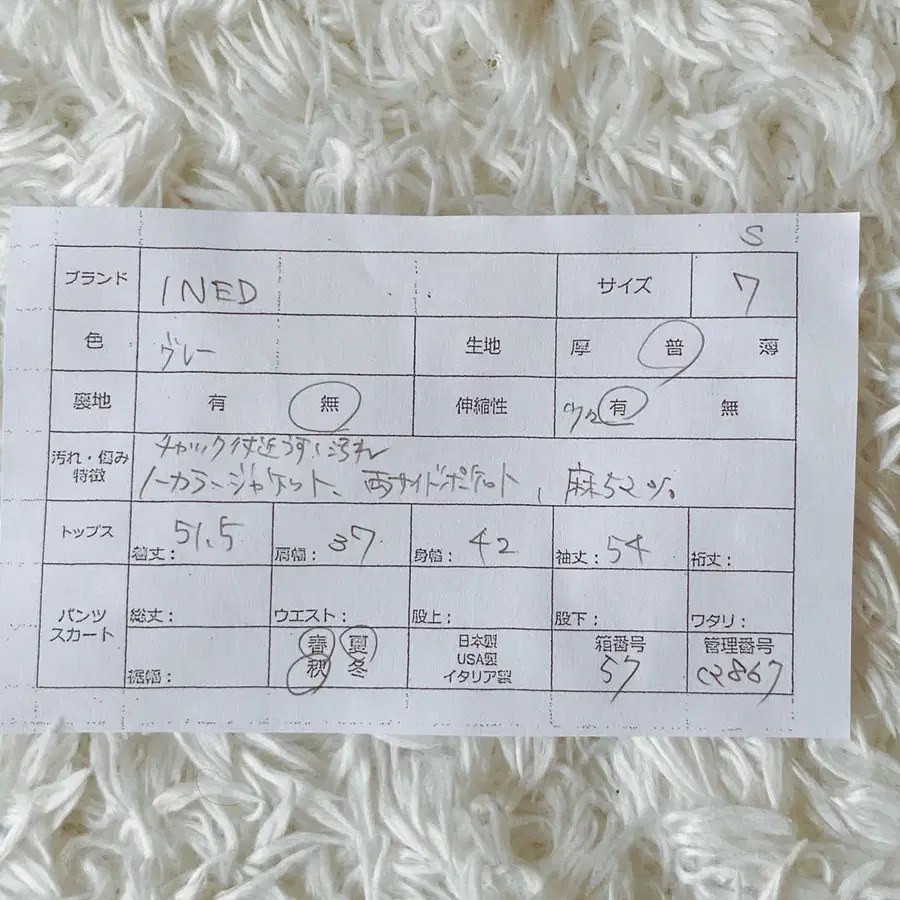 S
ブランド INED サイズ 7
色 グレー 生地 厚 普 薄
裏地 有 無 伸縮性 有 無
汚れ・傷み 特徴 チャック付近うすい汚れ
ノーカラージャケット、両サイドポケット、麻52%
トップス 着丈：51.5 肩幅：37 身幅：42 袖丈：54 裄丈：
パンツ スカート 総丈： ウエスト： 股上： 股下： ワタリ：
裾幅： 春 夏 秋 冬 日本製 USA製 イタリア製 箱番号 57 管理番号 C2867